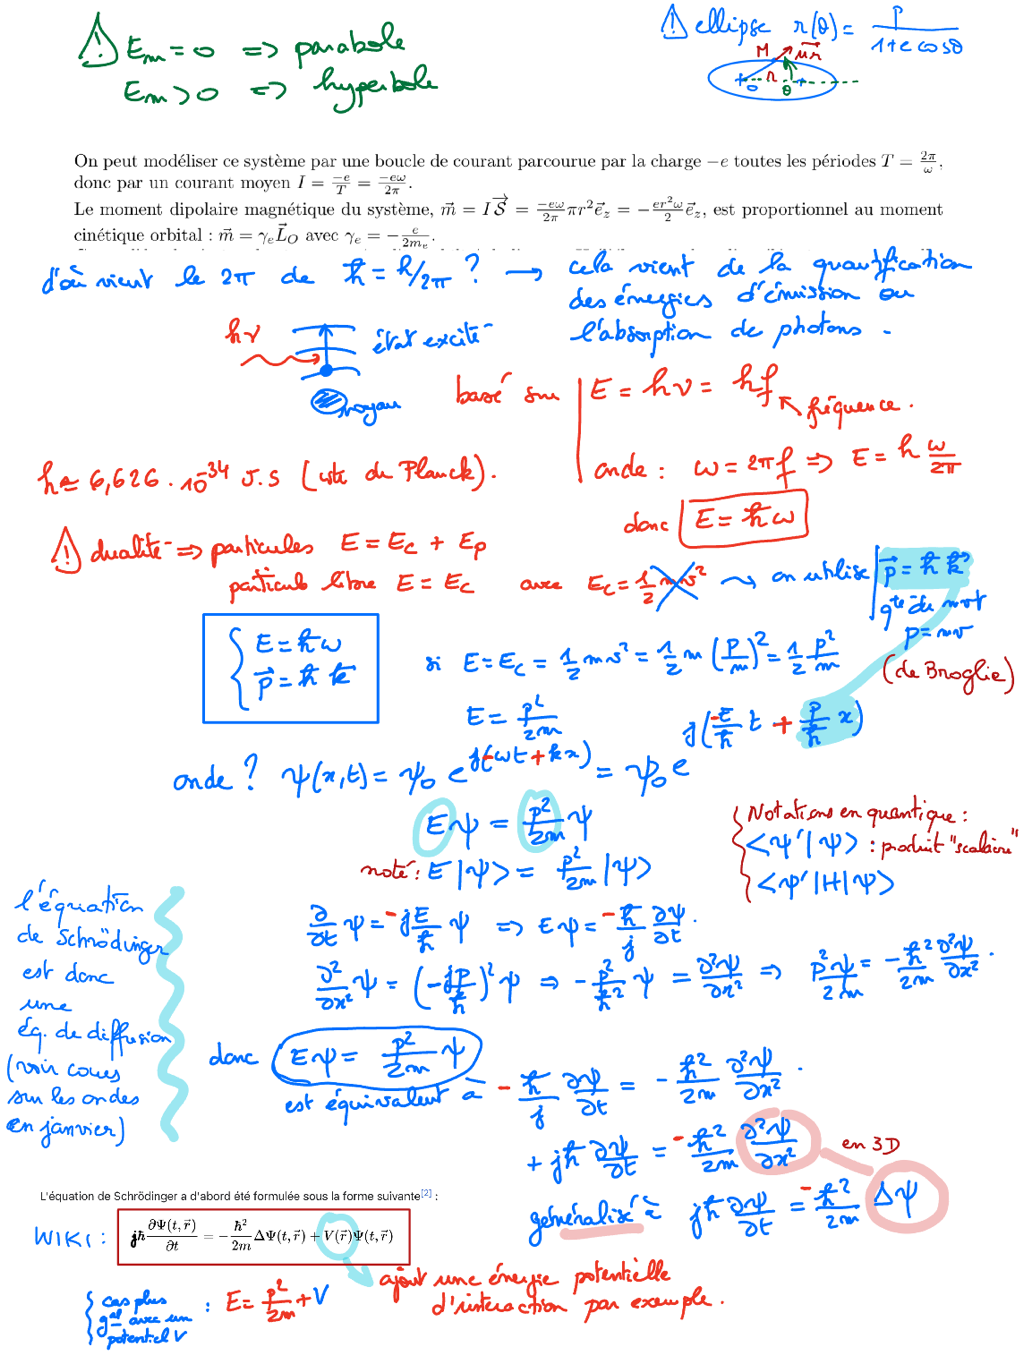 ⚠ Em = 0 => parabole
Em > 0 => hyperbole
⚠ ellipse r(θ) = p/(1+e cosθ)
M ur
r
O θ
On peut modéliser ce système par une boucle de courant parcourue par la charge −e toutes les périodes T = 2π/ω,
donc par un courant moyen I = −e/T = −eω/2π.
Le moment dipolaire magnétique du système, m⃗ = IS⃗ = −eω/2π πr²e⃗z = −er²ω/2 e⃗z, est proportionnel au moment
cinétique orbital : m⃗ = γe L⃗O avec γe = −e/2me.
d'où vient le 2π de ħ = h/2π ? → cela vient de la quantification
des énergies d'émission ou
l'absorption de photons.
hν
état excité
noyau
basé sur E = hν = hf
fréquence.
h ≃ 6,626 . 10^-34 J.S (cste de Planck).
onde : ω = 2πf => E = h ω/2π
donc E = ħω
⚠ dualité => particules E = Ec + Ep
particule libre E = Ec avec Ec = 1/2 mv² ⇝ on utilise p⃗ = ħ k⃗
qté de mvt
p = mv
(de Broglie)
E = ħω
p⃗ = ħ k⃗
si E = Ec = 1/2 mv² = 1/2 m (p/m)² = 1/2 p²/m
E = p²/2m
onde ? ψ(x,t) = ψ0 e^j(-ωt + kx) = ψ0 e^j(-E/ħ t + p/ħ x)
Eψ = p²/2m ψ
noté : E |ψ> = p²/2m |ψ>
Notations en quantique :
<ψ'|ψ> : produit "scalaire"
<ψ'|H|ψ>
∂/∂t ψ = -jE/ħ ψ => Eψ = -ħ/j ∂ψ/∂t.
∂²/∂x² ψ = (-jp/ħ)² ψ => -p²/ħ² ψ = ∂²ψ/∂x² => p²ψ/2m = -ħ²/2m ∂²ψ/∂x².
l'équation
de Schrödinger
est donc
une
éq. de diffusion
(voir cours
sur les ondes
en janvier)
donc Eψ = p²/2m ψ
est équivalent à -ħ/j ∂ψ/∂t = -ħ²/2m ∂²ψ/∂x².
+ jħ ∂ψ/∂t = -ħ²/2m ∂²ψ/∂x²
en 3D
généralisé à jħ ∂ψ/∂t = -ħ²/2m Δψ
L'équation de Schrödinger a d'abord été formulée sous la forme suivante[2] :
WIKI : jħ ∂Ψ(t,r⃗)/∂t = −ħ²/2m ΔΨ(t,r⃗) + V(r⃗)Ψ(t,r⃗)
ajout une énergie potentielle
d'interaction par exemple.
cas plus
gal avec un
potentiel V
: E = p²/2m + V